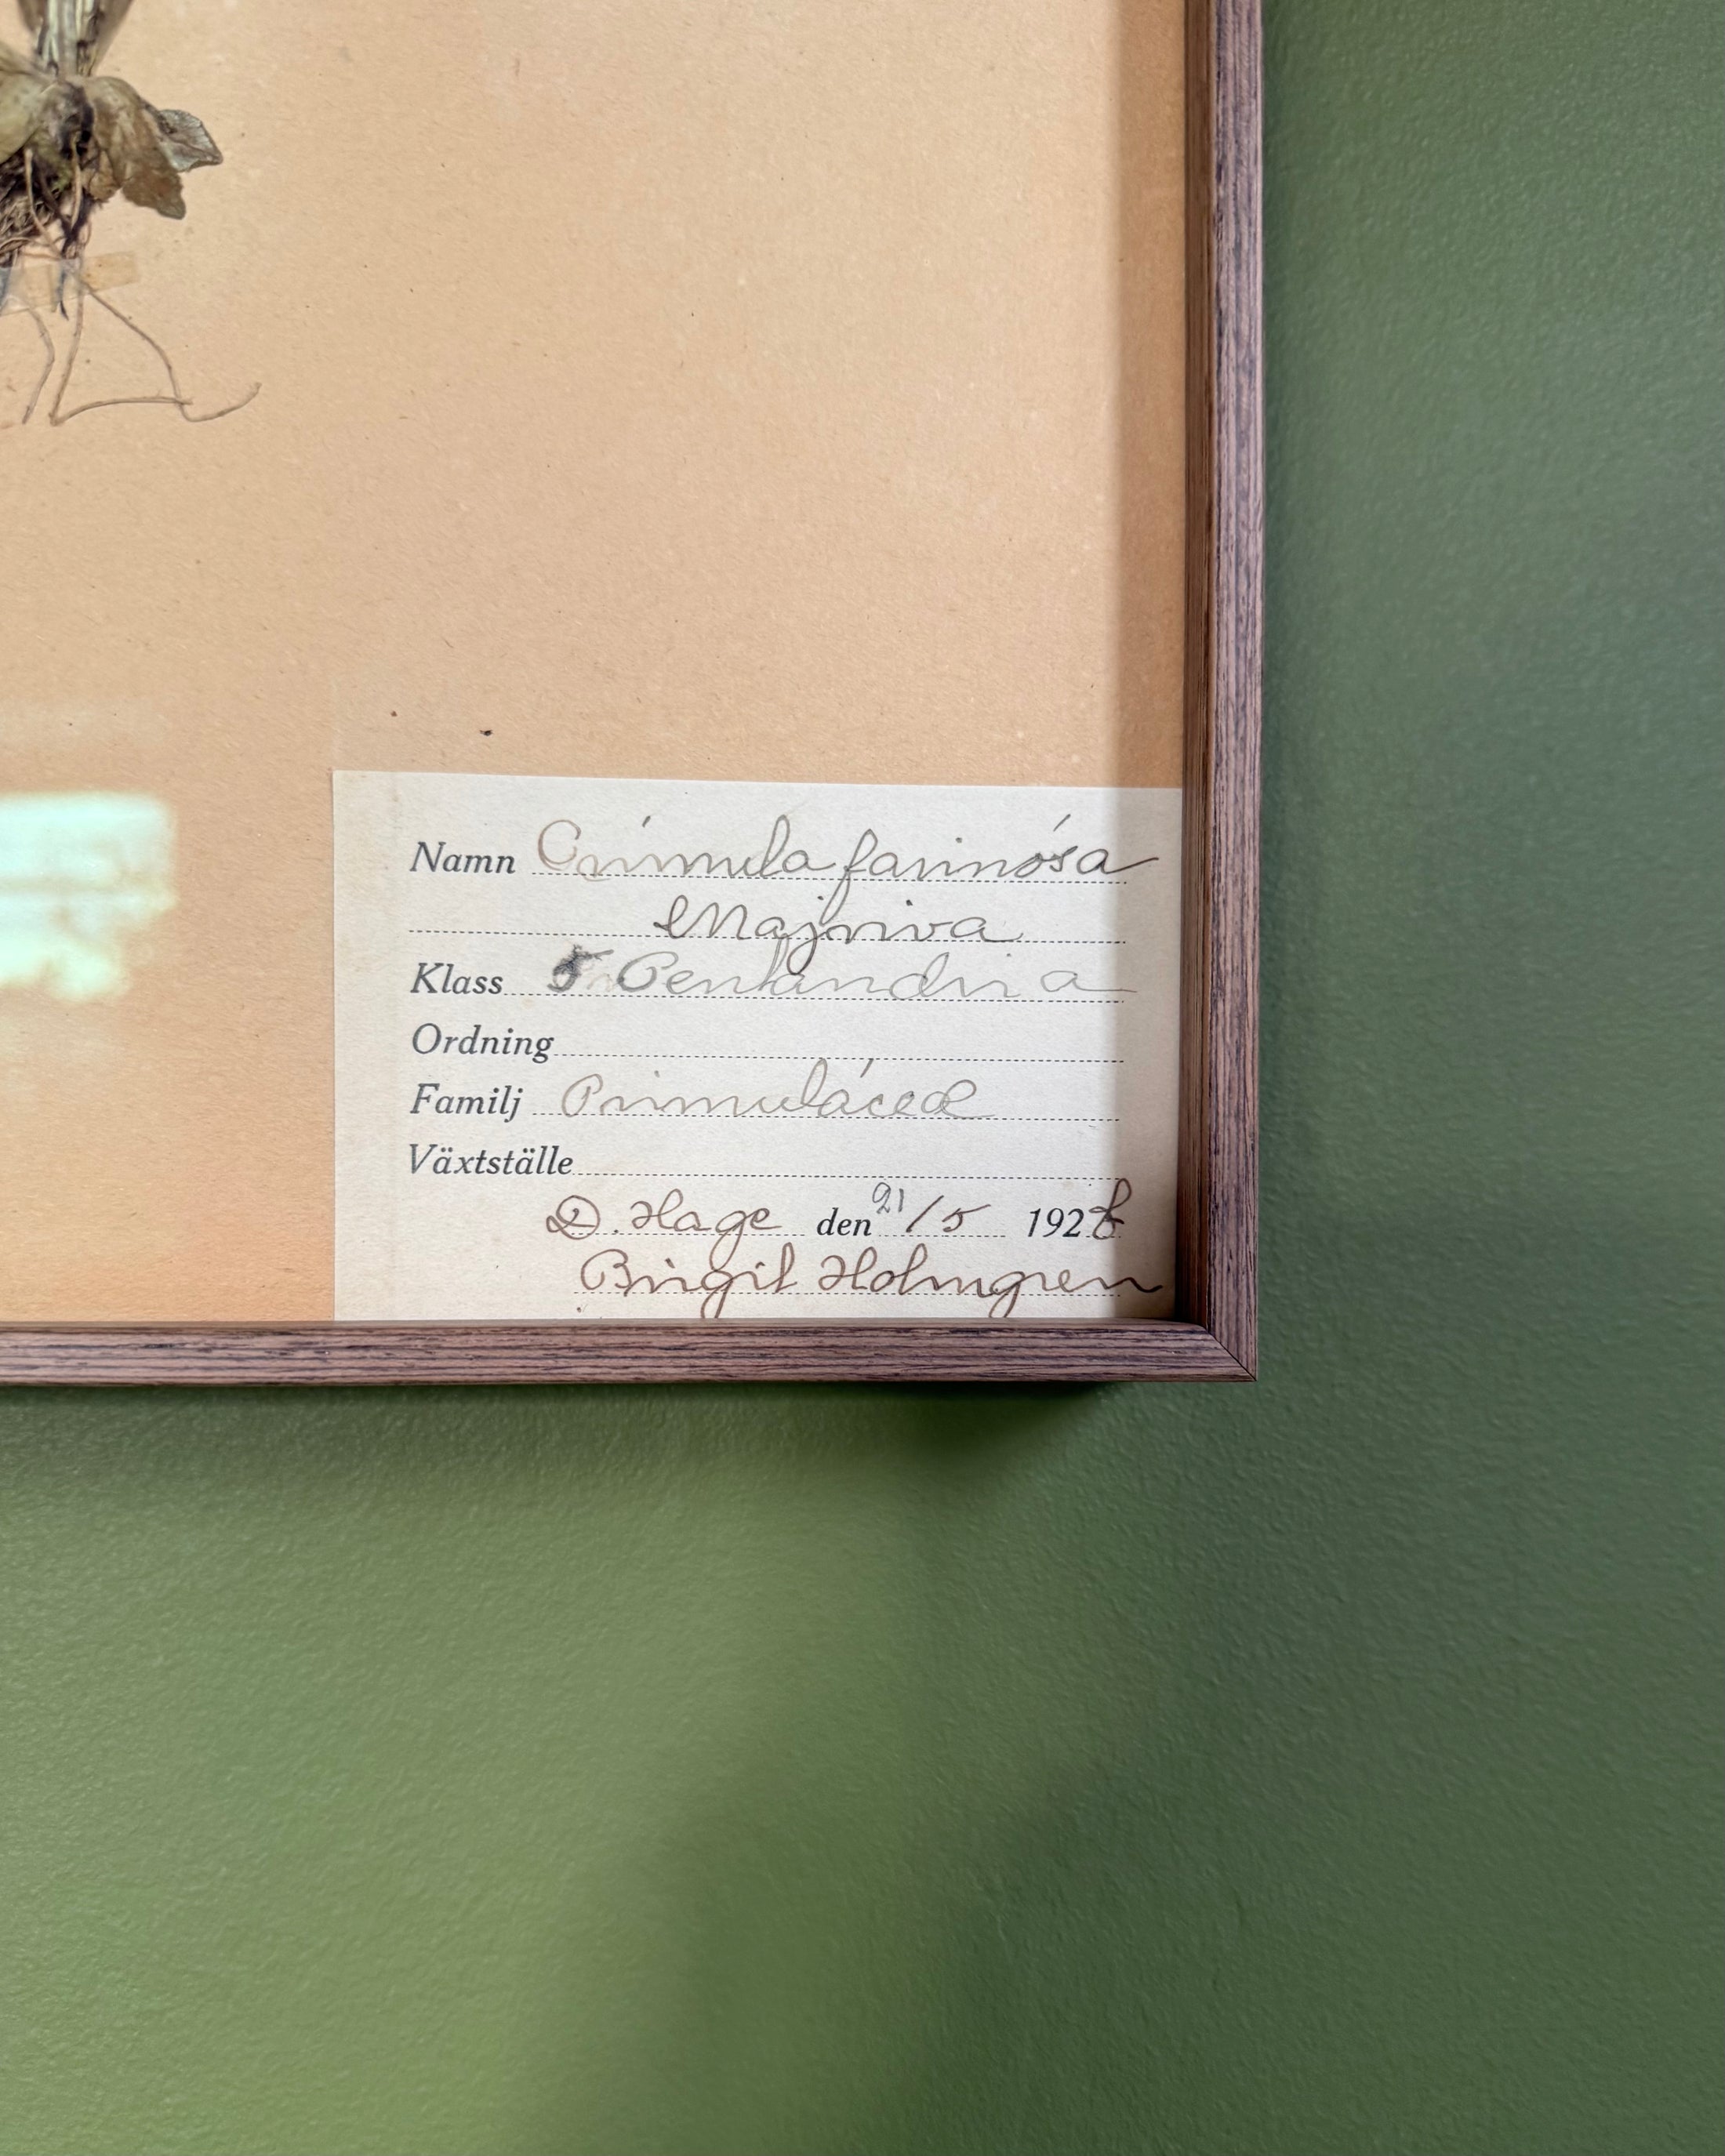 Namn Primula farinósa
Majviva
Klass 5 Pentandria
Ordning
Familj Primuláceæ
Växtställe
D. Hage den 21/5 1926
Birgit Holmgren